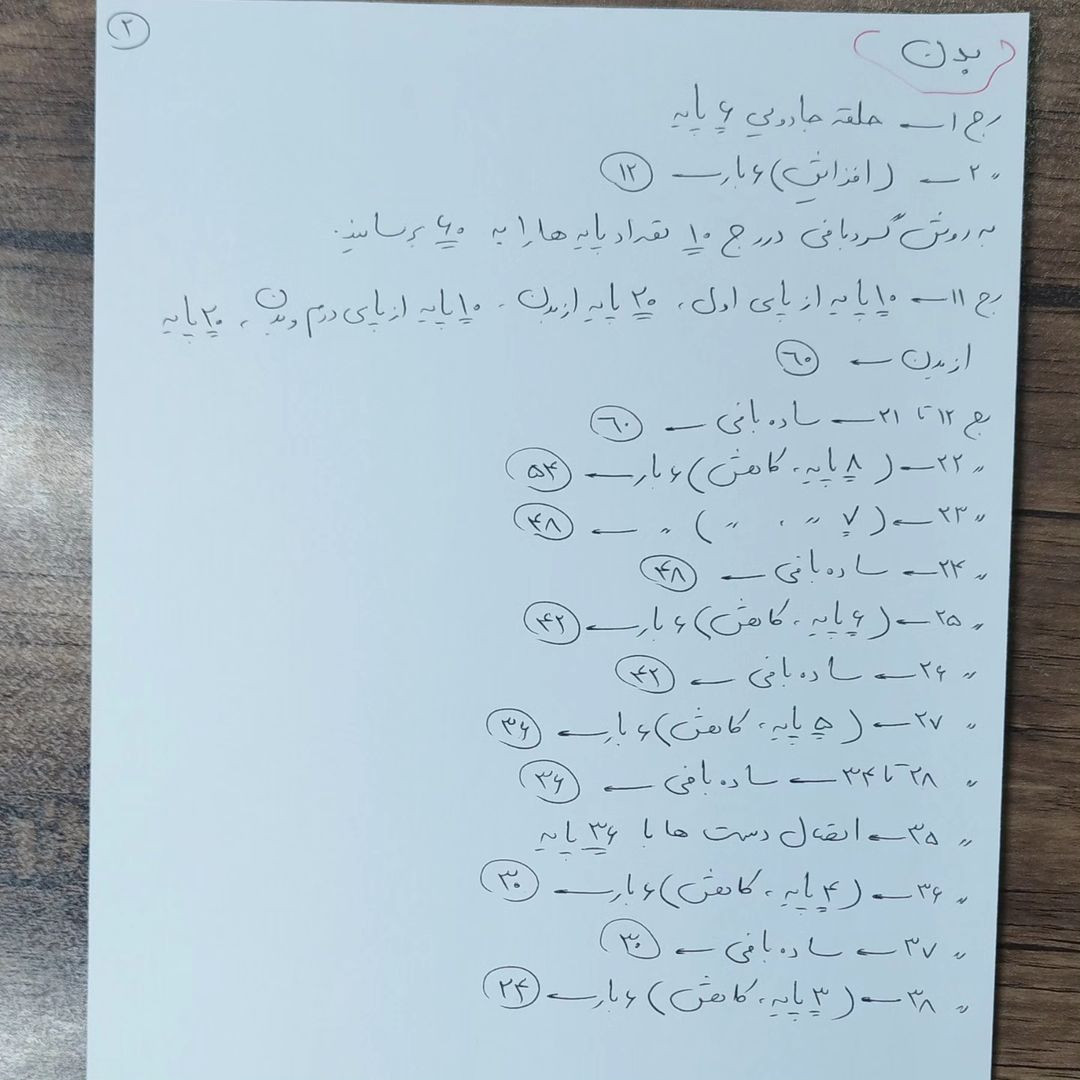 ۲
بدن
رج ۱← حلقه جادویی ۶ پایه
〃 ۲← (افزایش) ۶ بار← ۱۲
به روش گردبافی در رج ۱۰ تعداد پایه ها را به ۶۰ برسانید.
رج ۱۱← ۱۰ پایه از پای اول، ۲۰ پایه از بدن، ۱۰ پایه از پای دوم و بدن، ۲۰ پایه
از بدن ← ۶۰
رج ۱۲ تا ۲۱← ساده بافی ← ۶۰
〃 ۲۲← (۸ پایه، کاهش) ۶ بار← ۵۴
〃 ۲۳← (۷ 〃 ، 〃 ) 〃 ← ۴۸
〃 ۲۴← ساده بافی ← ۴۸
〃 ۲۵← (۶ پایه، کاهش) ۶ بار← ۴۲
〃 ۲۶← ساده بافی ← ۴۲
〃 ۲۷← (۵ پایه، کاهش) ۶ بار← ۳۶
〃 ۲۸ تا ۳۴← ساده بافی ← ۳۶
〃 ۳۵← اتصال دست ها با ۳۶ پایه
〃 ۳۶← (۴ پایه، کاهش) ۶ بار← ۳۰
〃 ۳۷← ساده بافی ← ۳۰
〃 ۳۸← (۳ پایه، کاهش) ۶ بار← ۲۴